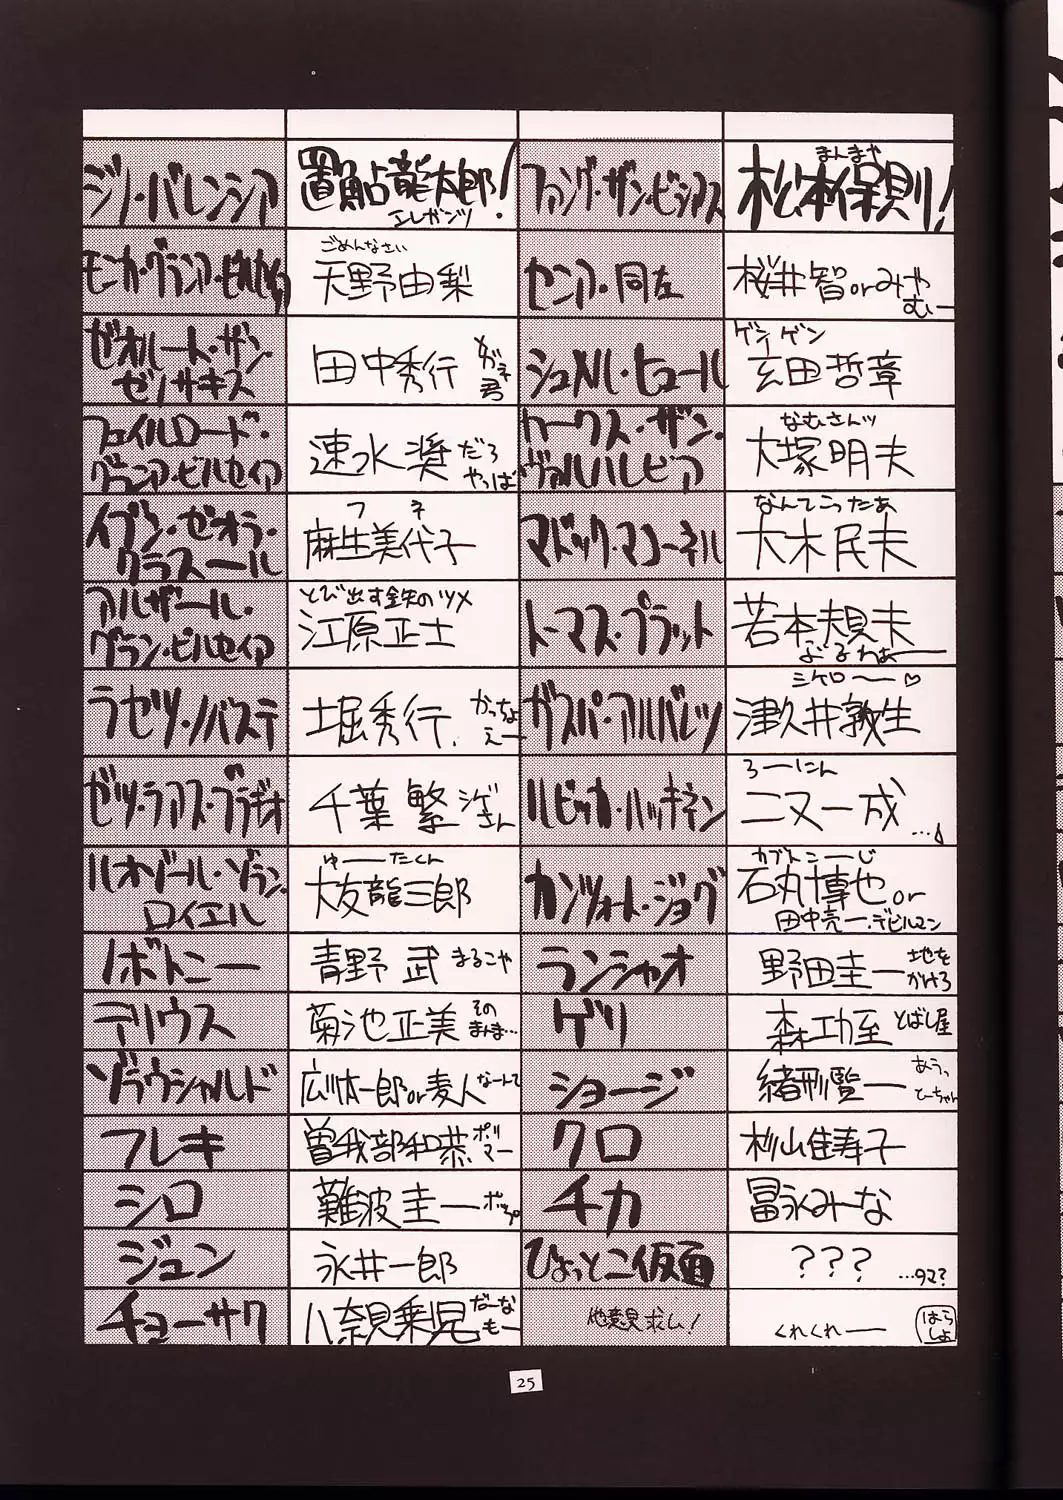 ジノ・バレンシア
置鮎龍太郎!
エレガンツ
ファング・ザン・ビシアス
まんまや
松本保則!
モニカ・グラニア・ビルセイア
ごめんなさい
天野由梨
セニア・同左
桜井智orみや
むー
ゼオルート・ザン・
ゼノサキス
田中秀行
めがネ
君
シュメル・ヒュール
ゲン ゲン
玄田哲章
フェイルロード・
グラニア・ビルセイア
速水奨だろ
やっぱ
カークス・ザン・
ヴァルハレビア
なむさんッ
大塚明夫
イブン・ゼオラ・
クラスール
フ ネ
麻生美代子
マドック・マコーネル
なんてこったあ
大木民夫
アルザール・
グラン・ビルセイア
とび出す鉄のツメ
江原正士
トーマス・プラット
若本規夫
ぶるわぁー
ラセツ・ノバステ
堀秀行
かっちょ
えー
ガスパ・アルバレツ
ミケロー♡
津久井教生
ゼツ・ラアス・ブラギオ
千葉繁 シゲ
さん
ルビッカ・ハッキネン
ろーにん
二又一成
…♪
ルオゾール・ゾラン・
ロイエル
ゆーたくん
大友龍三郎
カンツォート・ジョグ
カブトコーじ
石丸博也or
田中亮一・デビルマン
ノボトニー
青野 武 まるこや
ランシャオ
野田圭一 地を
かけろ
テリウス
菊池正美 その
まんま…
ゲリ
森功至 とばし屋
ゾラウシャルド
広川太一郎or麦人 なーんて
ショージ
緒形賢一 あうっ
とーちゃん
フレキ
曽我部和恭 ポリ
マー
クロ
杉山佳寿子
シロ
難波圭一 ポップ
チカ
冨永みーな
ジュン
永井一郎
ひょっとこ仮面
???
…タマ?
チョーサク
八奈見乗児 だーな
もー
他意見求ム!
くれくれー
はら
しょ
25